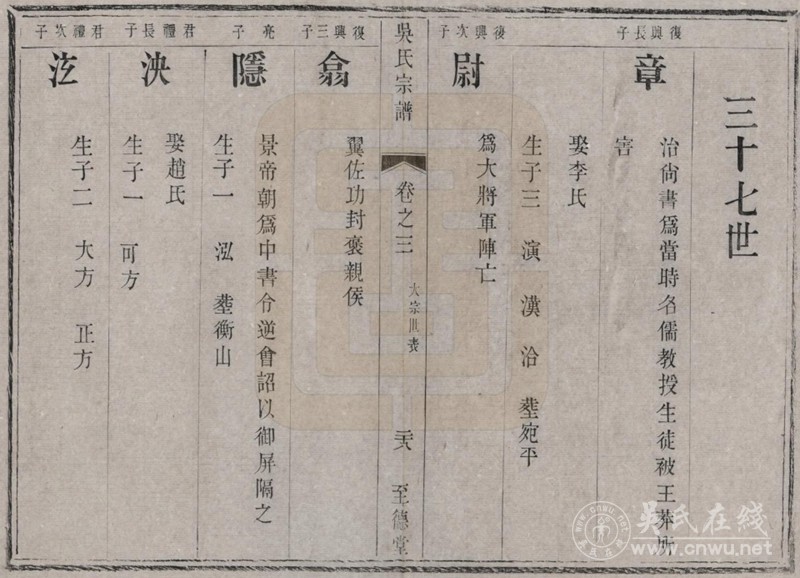 三十七世
復興長子
章
治尙書爲當時名儒教授生徒被王莽所
害
娶李氏
生子三 演 漢 治 塟宛平
復興次子
尉
爲大將軍陣亡
吳氏宗譜
卷之三
大宗世表
至德堂
復興三子
翕
翼佐功封褒親侯
亮子
隱
景帝朝爲中書令逆會詔以御屏隔之
生子一 泓 塟衡山
君禮長子
泱
娶趙氏
生子一 可方
君禮次子
汔
生子二 大方 正方
吴氏在线
www.cnwu.net